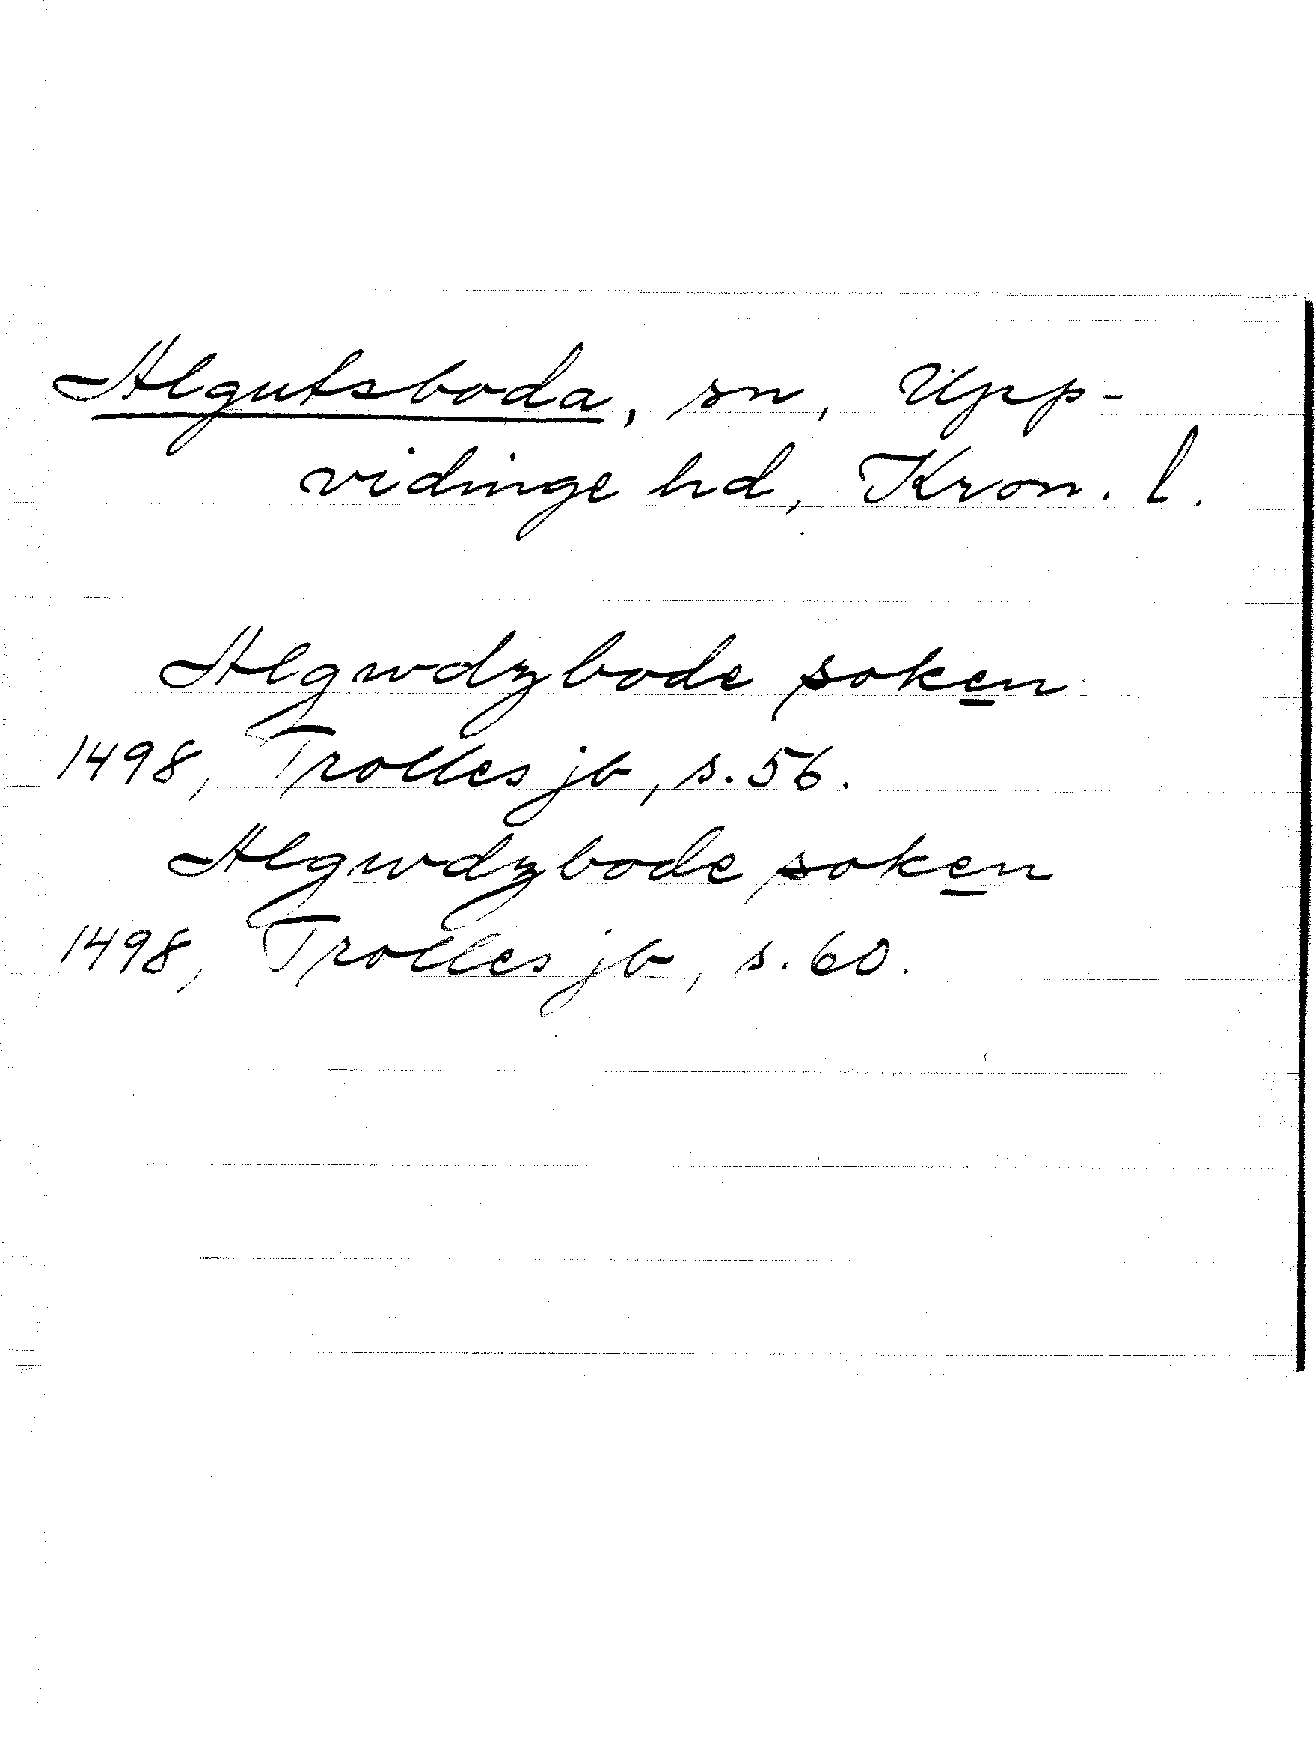 Algutsboda, sn, Upp-
vidinge hd, Kron. l.
Algwdzbode soken
1498, Trolles jb, s. 56.
Algwdzbode soken
1498, Trolles jb, s. 60.